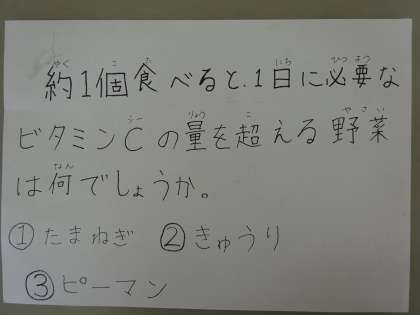 約1個食べると、1日に必要な
ビタミンCの量を超える野菜
は何でしょうか。
①たまねぎ ②きゅうり
③ピーマン